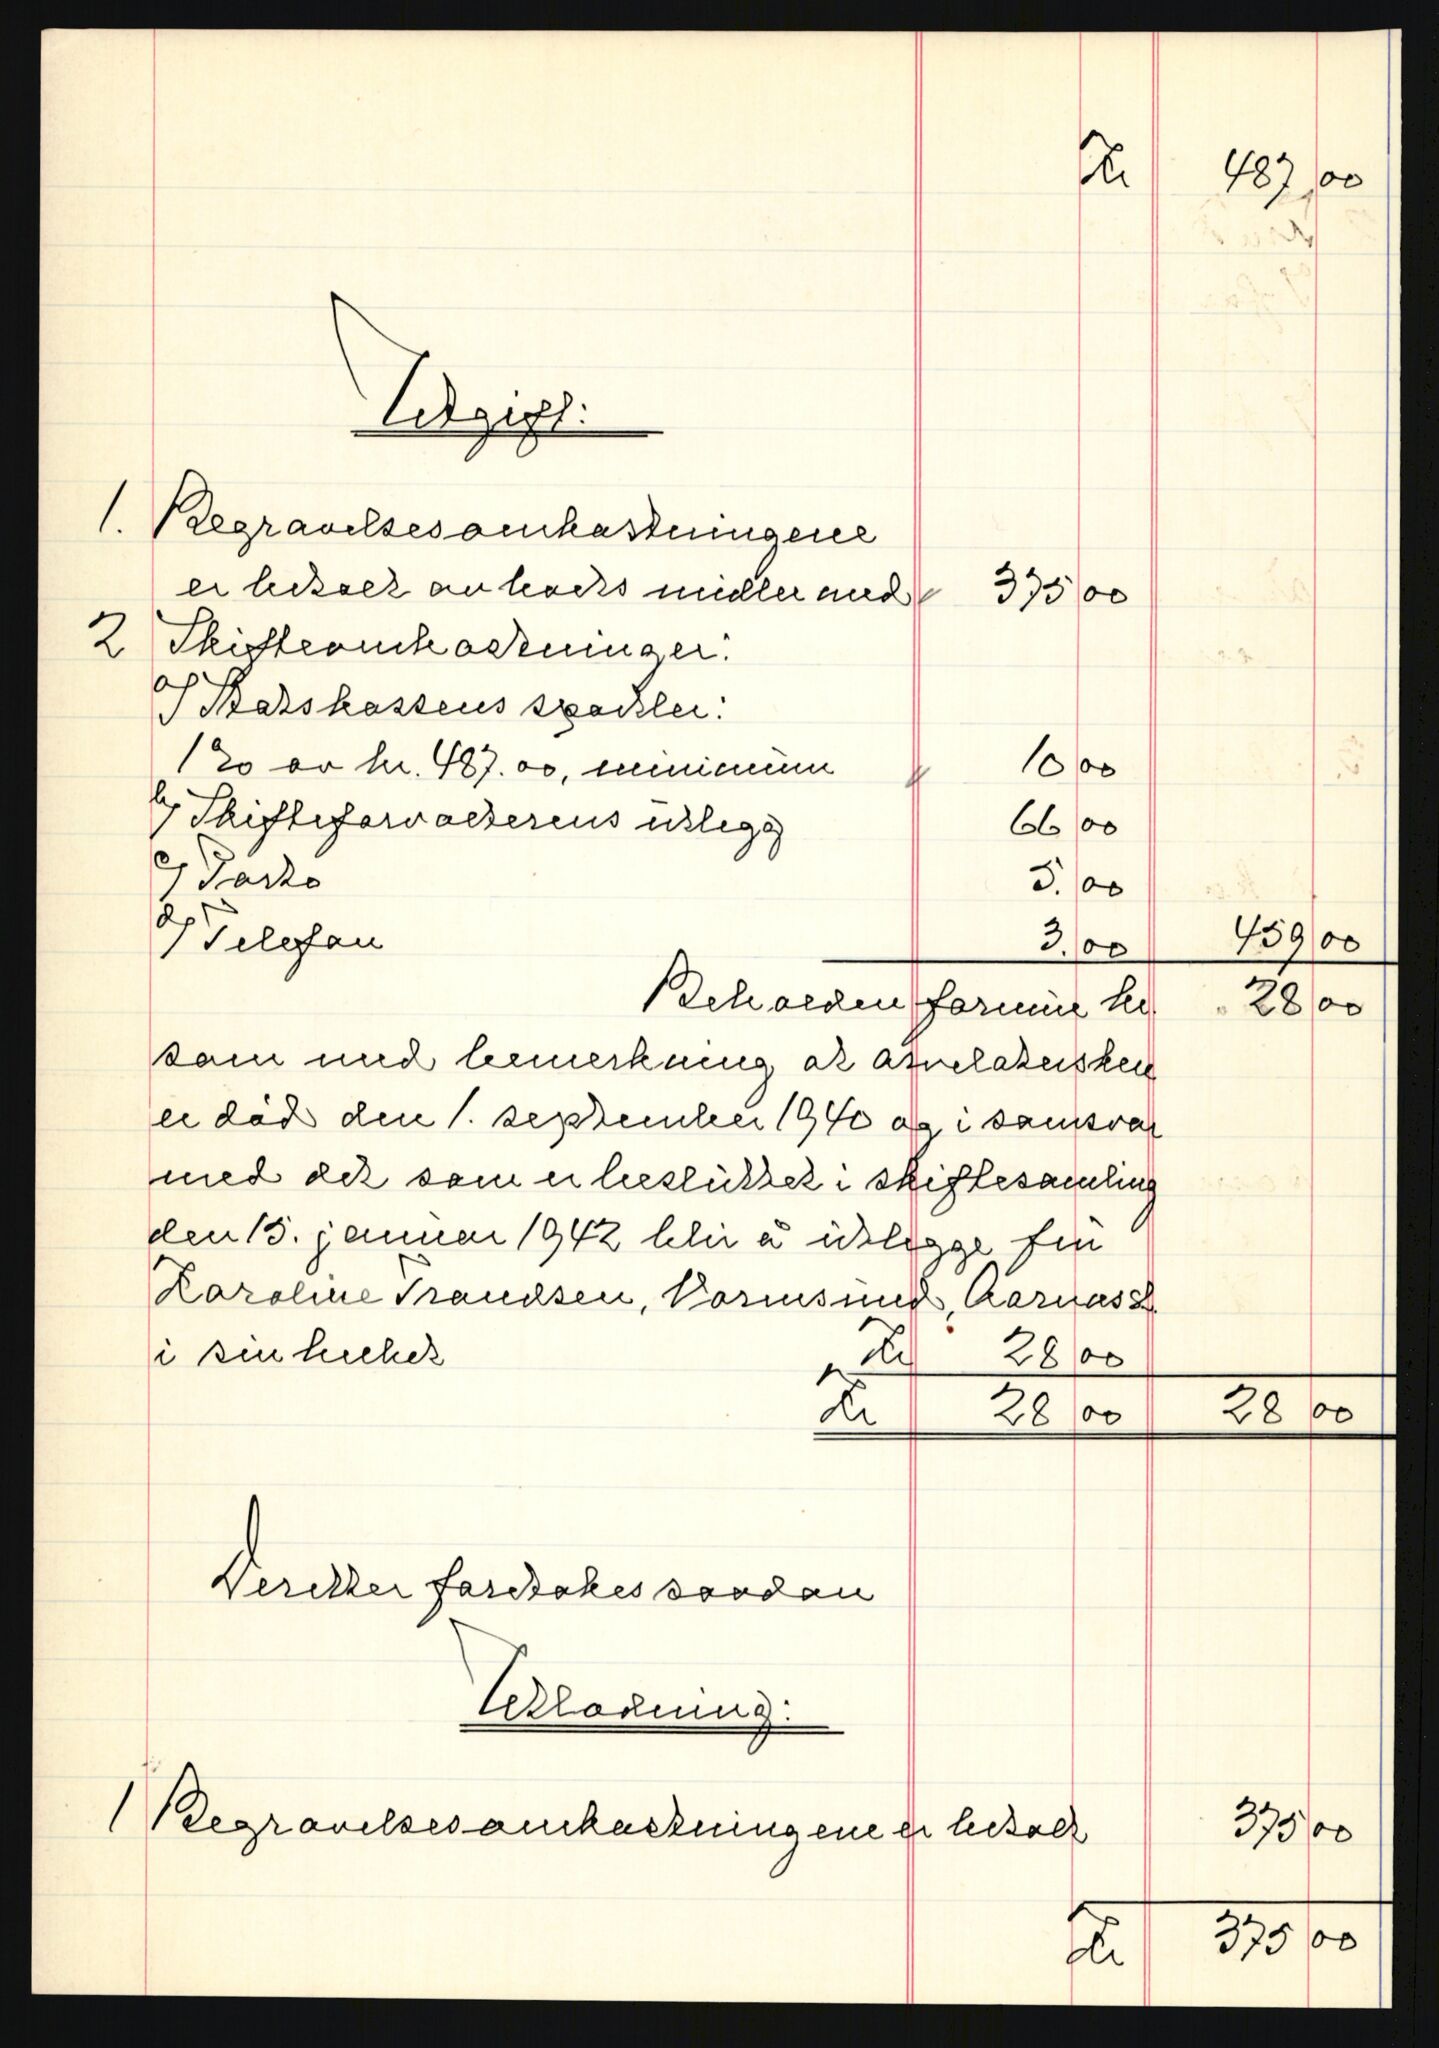 Kr 487 00
Utgift:
1. Begravelsesomkostningene
er betalt av boets midler med 375 00
2 Skifteomkostninger:
a) Statskassens sportler:
1% av kr. 487.00, minimum 10 00
b) Skifteforvalterens utlegg 66 00
c) Porto 5.00
d) Telefon 3.00 459 00
Beholden formue kr. 28 00
som med bemerkning at arvelatersken
er död den 1. september 1940 og i samsvar
med det som er besluttet i skiftesamling
den 15. januar 1942 blir å utlegge fru
Karoline Trondsen, Vormsund, Aarnes st.
i sin helhet Kr 28 00
Kr 28 00 28 00
Deretter foretokes saadan
Utlodning:
1 Begravelsesomkostningene er betalt 375 00
Kr 375 00